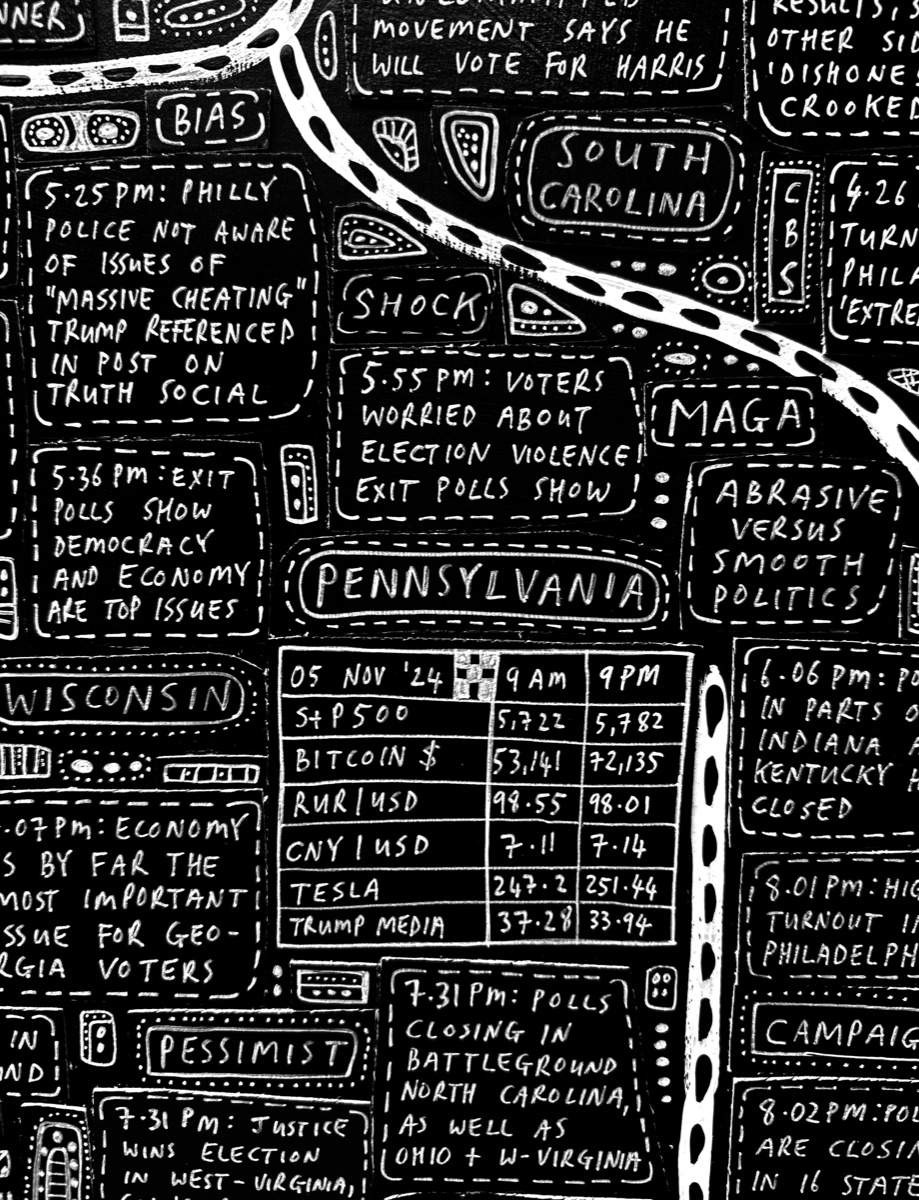 NNER
MOVEMENT SAYS HE
WILL VOTE FOR HARRIS
RESULTS, S
OTHER SI
'DISHONE
CROOKE
BIAS
SOUTH
CAROLINA
CBS
5.25 PM: PHILLY
POLICE NOT AWARE
OF ISSUES OF
"MASSIVE CHEATING"
TRUMP REFERENCED
IN POST ON
TRUTH SOCIAL
4.26
TURN
PHIL
'EXTRE
SHOCK
5.55 PM: VOTERS
WORRIED ABOUT
ELECTION VIOLENCE
EXIT POLLS SHOW
MAGA
5.36 PM: EXIT
POLLS SHOW
DEMOCRACY
AND ECONOMY
ARE TOP ISSUES
ABRASIVE
VERSUS
SMOOTH
POLITICS
PENNSYLVANIA
WISCONSIN
05 NOV '24 9 AM 9 PM
S+P 500 5,722 5,782
BITCOIN $ 53,141 72,135
RUR/USD 98.55 98.01
CNY/USD 7.11 7.14
TESLA 247.2 251.44
TRUMP MEDIA 37.28 33.94
6.06 PM: PO
IN PARTS O
INDIANA A
KENTUCKY H
CLOSED
.07 PM: ECONOMY
S BY FAR THE
MOST IMPORTANT
SSUE FOR GEO-
RGIA VOTERS
8.01 PM: HIG
TURNOUT I
PHILADELPH
PESSIMIST
7.31 PM: POLLS
CLOSING IN
BATTLEGROUND
NORTH CAROLINA,
AS WELL AS
OHIO + W-VIRGINIA
CAMPAIG
IN
ND
7.31 PM: JUSTICE
WINS ELECTION
IN WEST-VIRGINIA,
8.02 PM: PO
ARE CLOSI
IN 16 STATE